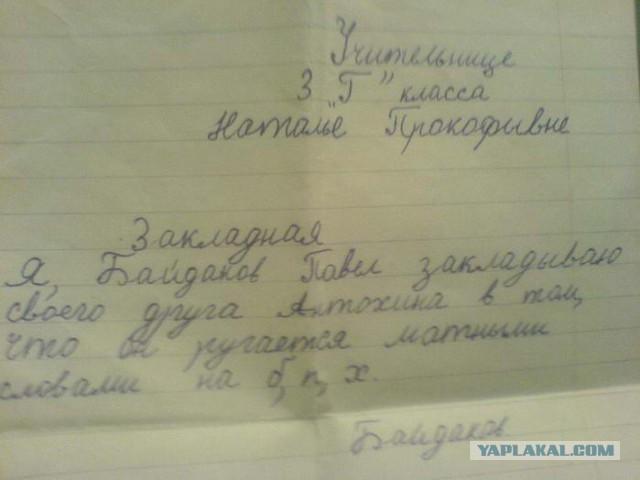 Учительнице
3 "Г" класса
Наталье Прокофывне
Закладная
Я, Байдаков Павел закладываю
своего друга Антохина в том,
что он ругается матными
словами на б, п, х.
Байдаков
YAPLAKAL.COM